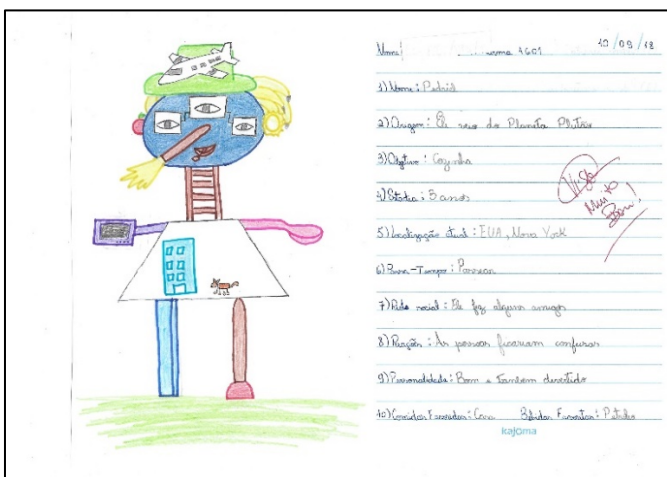 Nome: turma 1601 10/09/18
1) Nome:
2) Origem: Ele veio do Planeta Plutão
3) Objetivo: Cozinha
4) Estadia: 3 anos
5) Localização atual: EUA, Nova York
6) Passa-Tempo: Passear
7) Rede social: Ele fez alguns amigos
8) Reações: As pessoas ficariam confusas
9) Personalidade: Bom e também divertido
Visto
Muito
Bom!
10) Comidas Favoritas: Bebidas Favoritas:
kajoma